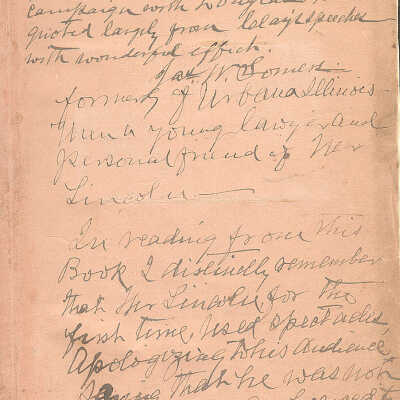 campaign with Douglas he
quoted largely from Clay's speeches
with wonderful effect.
Jas W. Somers
formerly of Urbana Illinois
then a young lawyer and
personal friend of Mr
Lincoln
In reading from this
Book I distinctly remember
that Mr Lincoln, for the
first time, used spectacles,
Apologizing to his audience,
saying that he was not